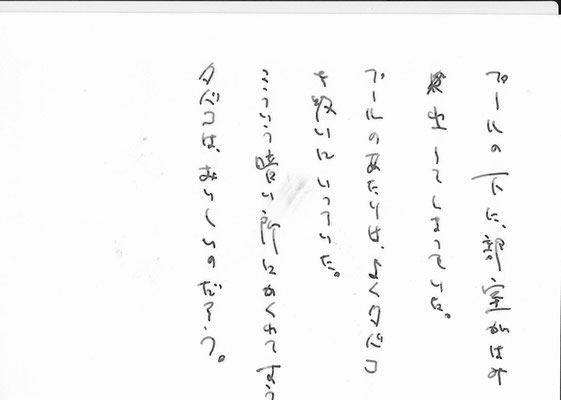 プールの下に、部室がはみ
出してしまっていた。
プールのあたりは、よくタバコ
を吸いにいっていた。
こういう暗い所にかくれて吸う
タバコは、おいしいのだろう。